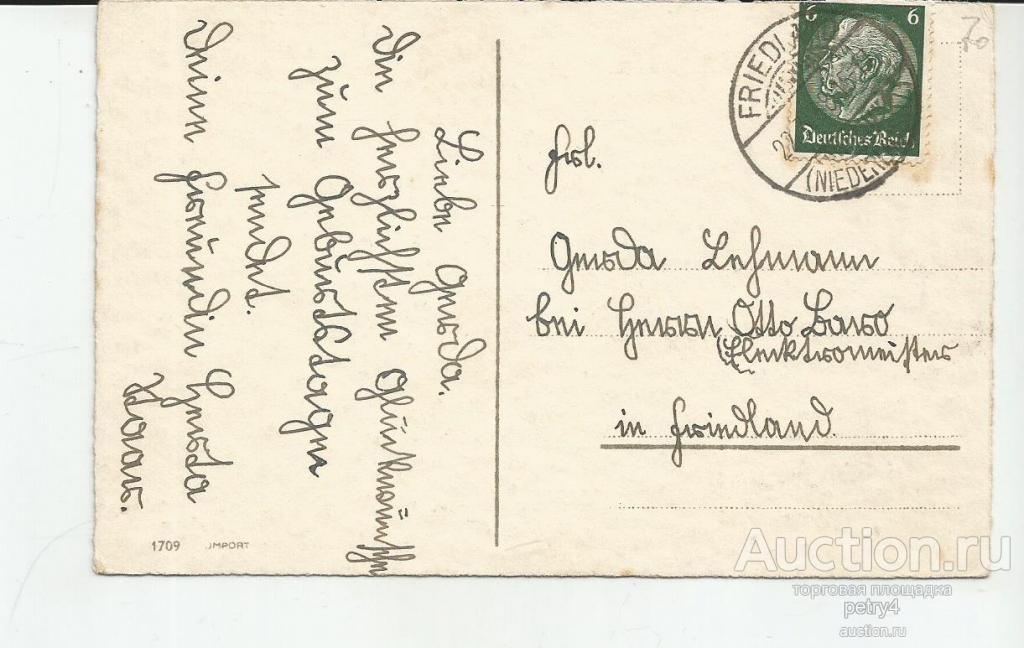 Liebe Gerda.
Die herzlichsten Glückwünsche
zum Geburtstage
sendet.
Deine Freundin Herta
Frl.
Gerda Lehmann
bei Herrn Otto
Elecktromeister
in Friedland.
6
6
Deutsches Reich
FRIEDL
(NIEDER
1709 IMPORT
70
Auction.ru
торговая площадка
petry4
auction.ru